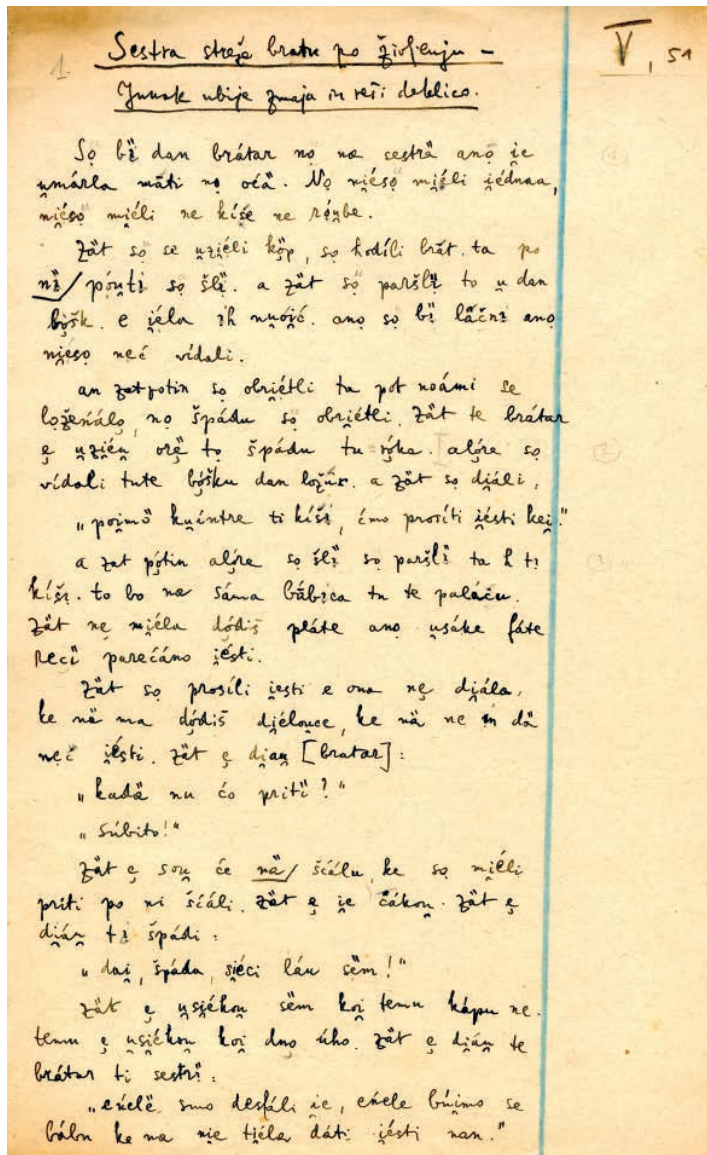 1. Sestra streže bratu po življenju –
V, 51
Junak ubije zmaja in reši deklico.
Sọ bi̤ dan brátar nọ na sesträ anọ i̯e
u̯márla mäti nọ oćä. Nọ ni̯ésọ mi̯éli i̯édnaa,
ni̯ésọ mi̯éli ne kíše ne róu̯be.
Zät sọ se u̯zi̯éli köp, sọ hodíli brät. ta po
nï/ póu̯ti sọ šlï. a zät sọ paršlï to u̯ dan
bọšk. e i̯éla ih nu̯ói̯ć. anọ so bï láčni anọ
ni̯ésọ neć vídali.
an zat potin sọ obri̯étli ta pot noámi se
ložeńálọ, nọ špádu sọ obri̯étli. Zät te brátar
ẹ u̯zi̯éu̯ orë tọ špádu tu rọ́ka. alọ́re sọ
vídali tute bọ́šku dan ložúr. a zät sọ di̯áli,
„poi̯mö ku̯ántre ti kíši, ćmo prosíti i̯ésti kei̯."
a zat pọ́tin alọ́re sọ šlï sọ paršlï ta h ti
kíši. to bo na sáma bábica tu te paláću.
Zät nẹ mi̯éla dọ́diš pláte anọ u̯sáke fáte
rećï parećáno i̯ésti.
Zät sọ prosíli i̯esti e ona nẹ di̯ála,
ke nä ma dọ́diš di̯élou̯ce, ke nä ne in dä
neć i̯ésti. Zät ẹ di̯au̯ [bratar]:
„kadä nu ćo pritï?"
„Súbito!"
Zät ẹ šou̯ će nä/ šćálu, ke sọ mi̯éli
príti po ni šćáli. Zät ẹ i̯e čákou̯. Zät ẹ
di̯áu̯ ti špádi:
„dai̯, špáda, si̯éci láu sëm!"
Zät ẹ u̯si̯ékou̯ sëm koi̯ temu kápu ne.
temu ẹ u̯si̯ékou̯ koi̯ dnọ úho. Zät ẹ di̯áu̯ te
brátar ti sestrï:
„eńelë smo desfáli i̯e, eńele búi̯mo se
bábu ke na nie ti̯éla dáti i̯ésti nan."